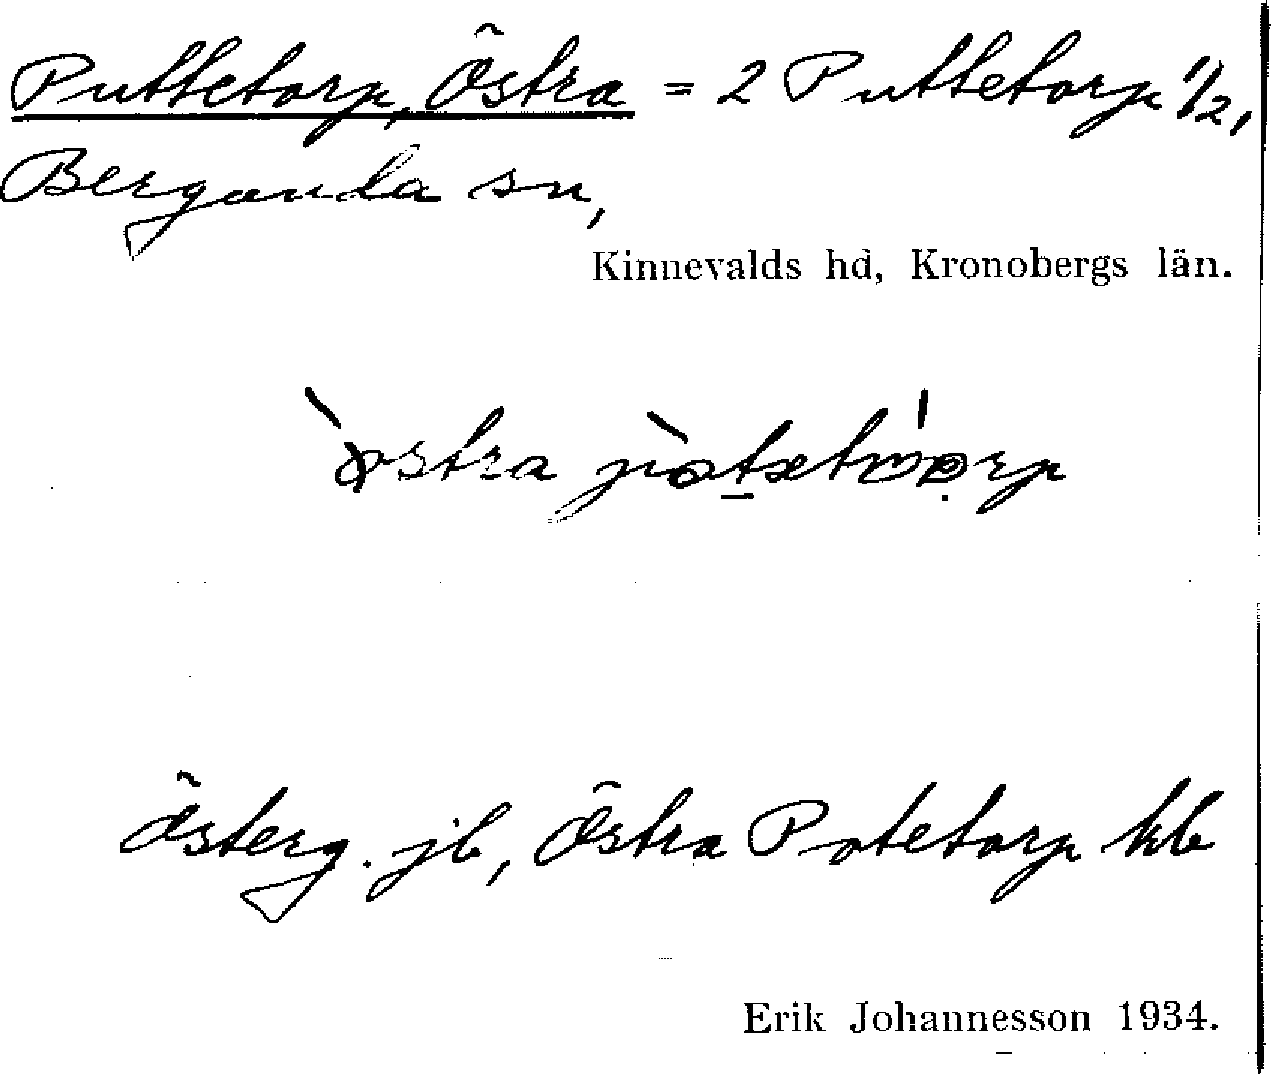 Puttetorp, Östra = 2 Puttetorp 1/2,
Bergunda sn,
Kinnevalds hd, Kronobergs län.
Österg. jb, Östra Potetorp kb
Erik Johannesson 1934.